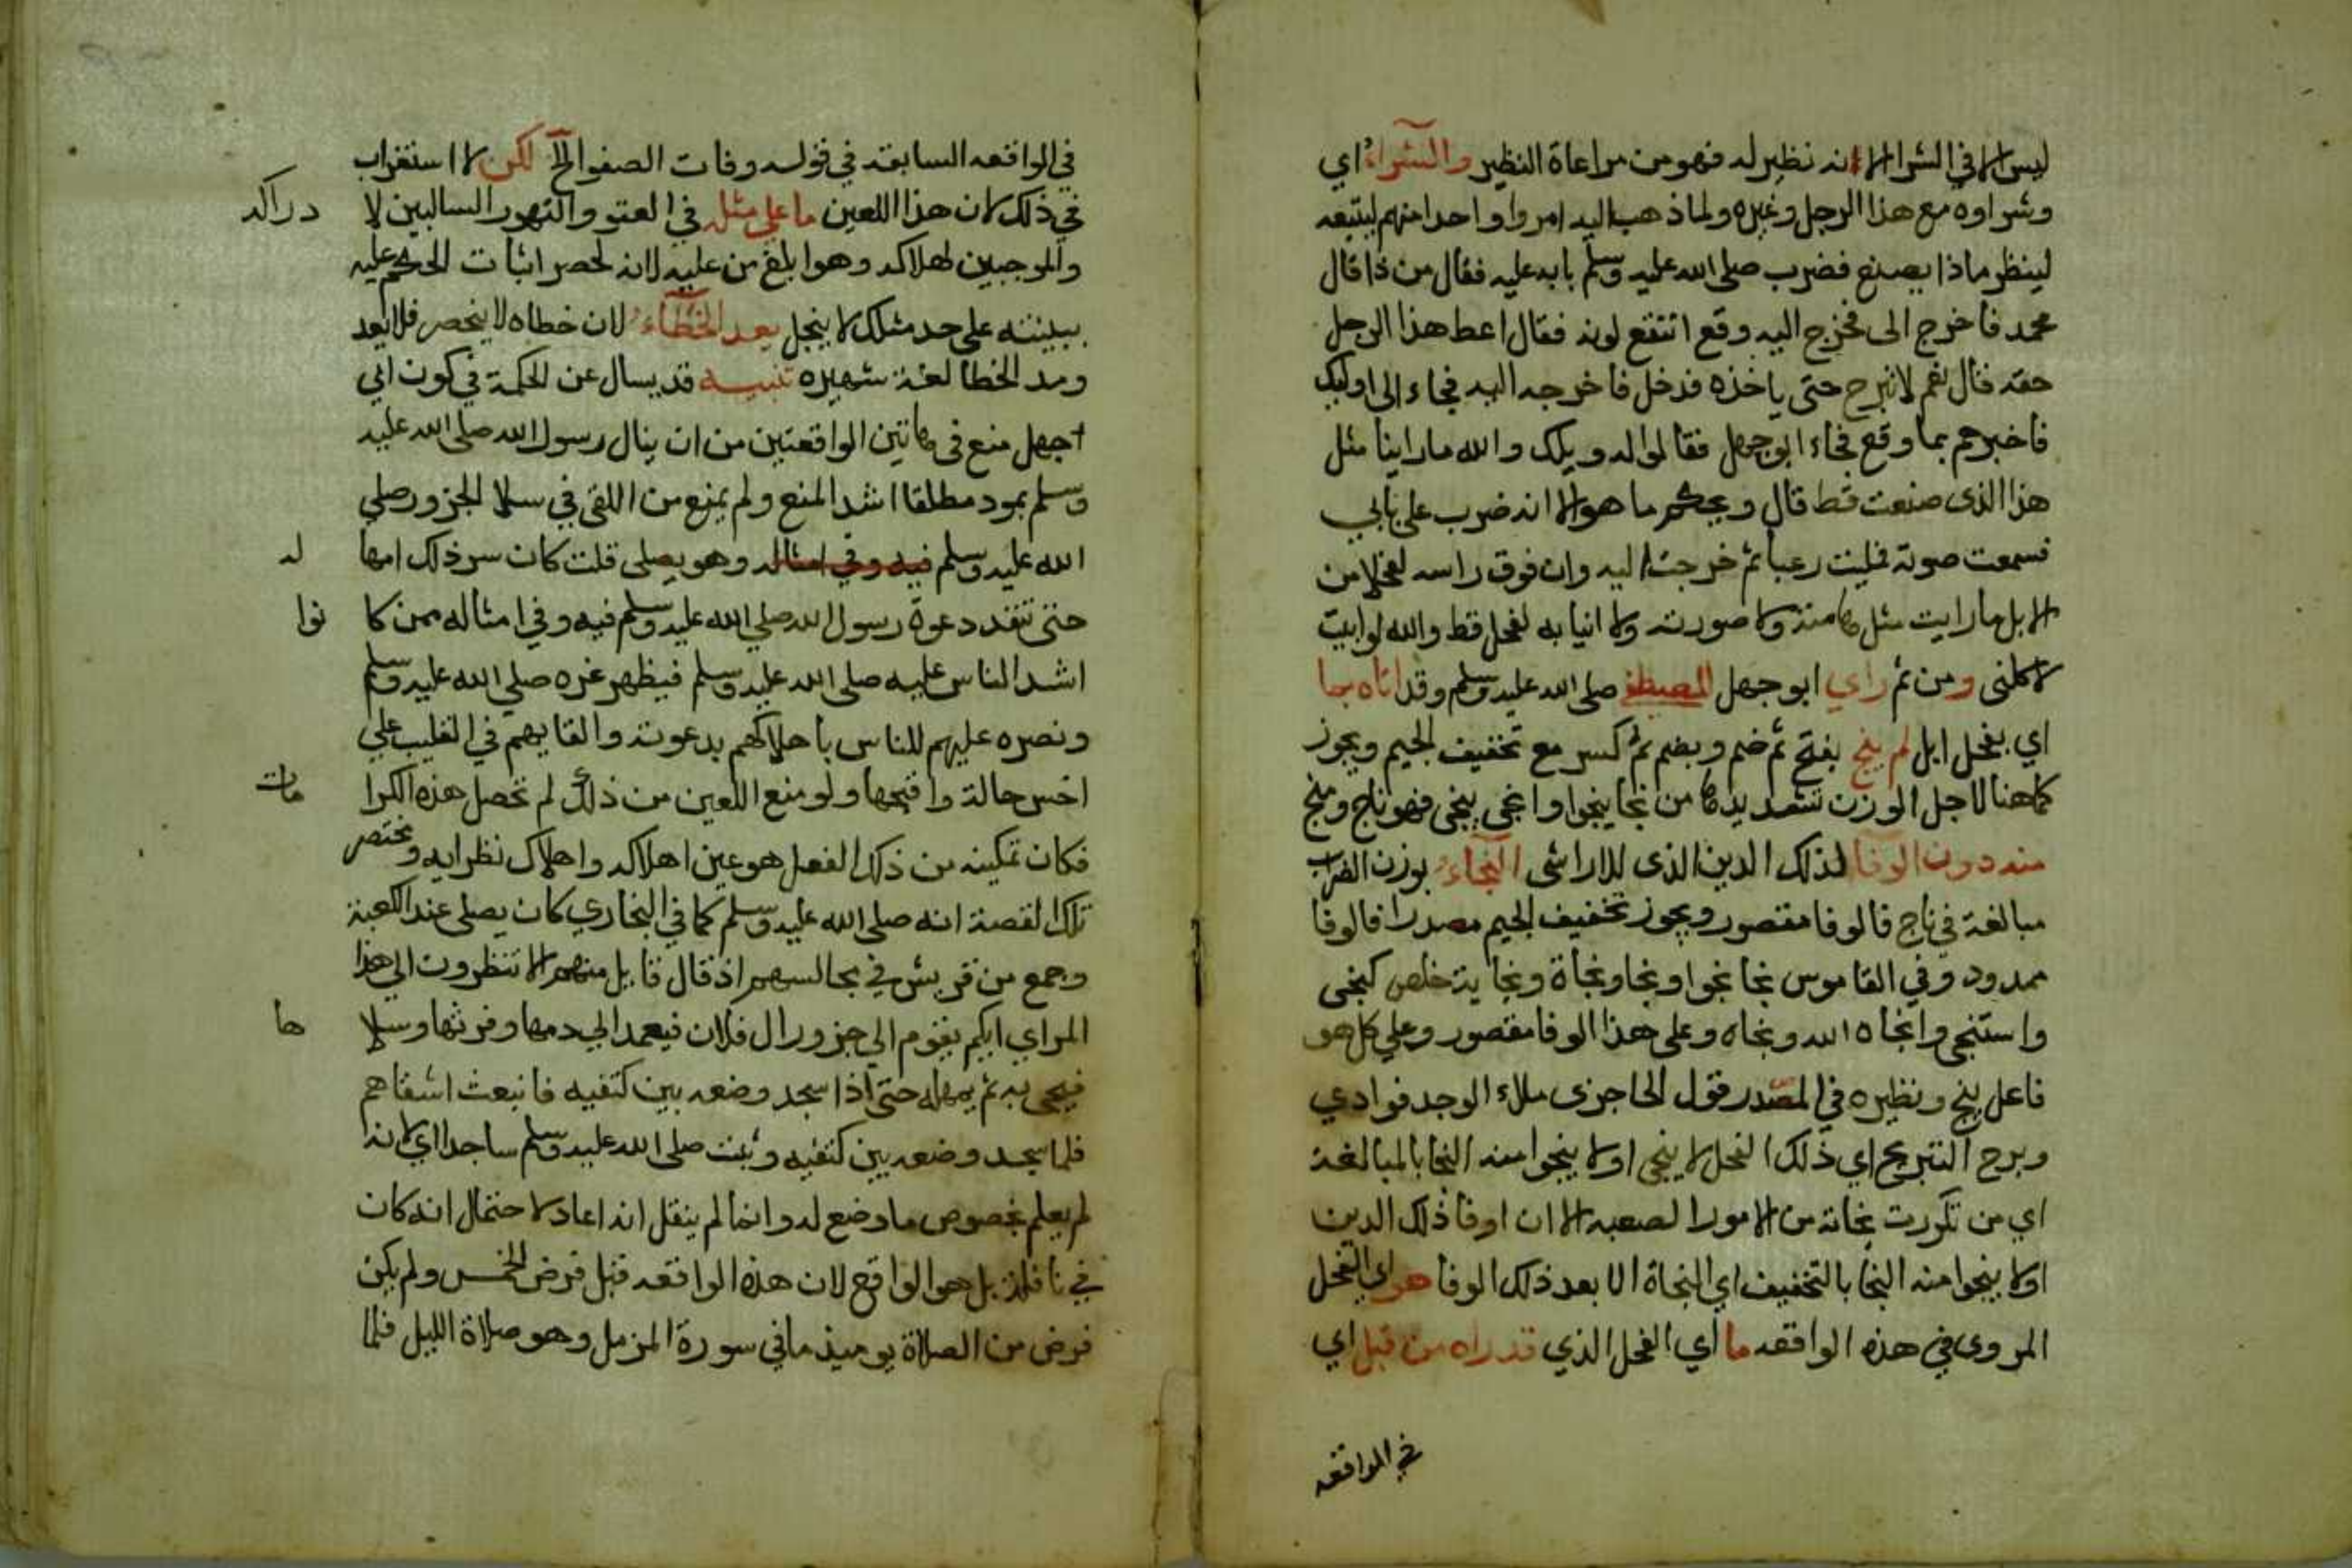 ليس الا في الشرا الا انه نظير له فهو من مراعاة النظير والشراء اي
وشراوه مع هذا الرجل وغيره ولما ذهب اليه امروا واحدا منهم ليتبعه
لينظر ماذا يصنع فضرب صلى الله عليه وسلم بابه عليه فقال من ذا قال
محمد فاخرج الى فخرج اليه وقع انتقع لونه فقال اعط هذا الرجل
حقه قال نعم لا تبرح حتى ياخذه فدخل فاخرجه اليه فجاء الى اوليك
فاخبرهم بما وقع فجاء ابو جهل فقالوا له ويلك والله ما راينا مثل
هذا الذى صنعت قط قال ويحكم ما هو الا انه ضرب على بابي
فسمعت صوته فمليت رعبا ثم خرجت اليه وان فوق راسه لفحلا من
الابل ما رايت مثل هامته ولا صورته ولا انيابه لفحل قط والله لو ابيت
لاكلنى ومن ثم راي ابو جهل المصطفى صلى الله عليه وسلم وقد اتاه بما
اي بفحل ابل لم ينج بفتح ثم ضم وبضم ثم كسر مع تخفيف الجيم ويجوز
كما هنا لاجل الوزن تشديدها من نجا ينجوا وانجى ينجى فهو ناج ومنج
منه دون الوفا لذلك الدين الذى للاراشى النجاء بوزن الضراب
مبالغة في ناج فالوفا مقصور ويجوز تخفيف الجيم مصدرا فالوفا
ممدود وفي القاموس نجا نجوا ونجا ونجاة ونجاية خلص كنجى
واستنجى وانجاه الله ونجاه وعلى هذا الوفا مقصور وعلي كل هو
فاعل ينج ونظيره في المصدر قول الحاجزى ملاء الوجد فوادي
وبرح التبريح اي ذلك الفحل لا ينجى او لا ينجوا منه النجا بالمبالغة
اي من تكررت نجاته من الامور الصعبه الا ان اوفا ذلك الدين
اولا ينجوا منه النجا بالتخفيف اي النجاة الا بعد ذلك الوفا هو اي الفحل
المروى في هذه الواقعه ما اي الفحل الذي قد راه من قبل اي
في الواقعه
في الواقعه السابقه في قوله وفات الصفوا الخ لكن لا استغراب
في ذلك لان هذا اللعين ما على مثله في العتو والتهور السالبين لا دراكه
والموجبين لهلاكه وهو ابلغ من عليه لانه لحصر اثبات الحكم عليه
ببينته على حد مثلك لا ينجل يعد الخطاء لان خطاه لا ينحصر فلا يعد
ومد الخطا لغة شهيره تنبيه قد يسال عن الحكمة في كون ابي
جهل منع فى هاتين الواقعتين من ان ينال رسول الله صلى الله عليه
وسلم بمود مطلقا اشد المنع ولم يمنع من اللقى في سلا الجزور صلي
الله عليه وسلم فيه وفي امثاله وهو يصلى قلت كان سر ذلك امها له
حتى تنفد دعوة رسول الله صلى الله عليه وسلم فيه وفي امثاله ممن كا نوا
اشد الناس عليه صلى الله عليه وسلم فيظهر عزه صلى الله عليه وسلم
ونصره عليهم للناس باهلاكهم بدعوته والقايهم في القليب علي
اخس حالة واقبحها ولو منع اللعين من ذلك لم تحصل هذه الكرا مات
فكان تمكينه من ذلك الفعل هو عين اهلاكه واهلاك نظرايه ومختصر
تلك القصة انه صلى الله عليه وسلم كما في البخاري كان يصلى عند الكعبة
وجمع من قريش في مجالسهم اذ قال قايل منهم الا تنظرون الى هذا
المراي ايكم يقوم الي جزور ال فلان فيعمد الي دمها وفرثها وسلا ها
فيجى به ثم يمهله حتى اذا سجد وضعه بين كتفيه فانبعث اشقاهم
فلما سجد وضعه بين كتفيه وثبت صلى الله عليه وسلم ساجدا اي لانه
لم يعلم بخصوص ما وضع له وانما لم ينقل انه اعاد لاحتمال انه كان
في نافلة بل هو الواقع لان هذه الواقعه قبل فرض الخمس ولم يكن
فرض من الصلاة يوميذ ما في سورة المزمل وهو صلاة الليل فلما